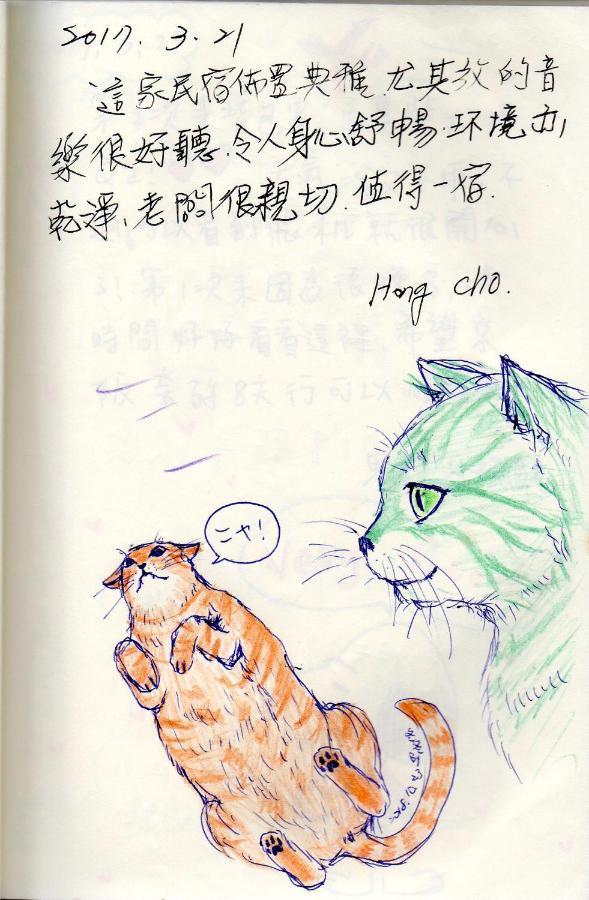 2017.3.21
這家民宿佈置典雅 尤其放的音
樂很好聽.令人身心舒暢.环境亦
乾淨,老闆很親切.值得一宿.
Hong Cho.
ニャ!